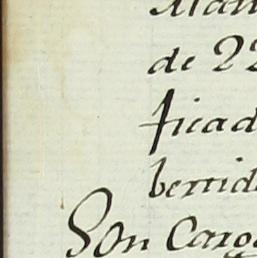 de 22
ficad
bertid
Son Carg